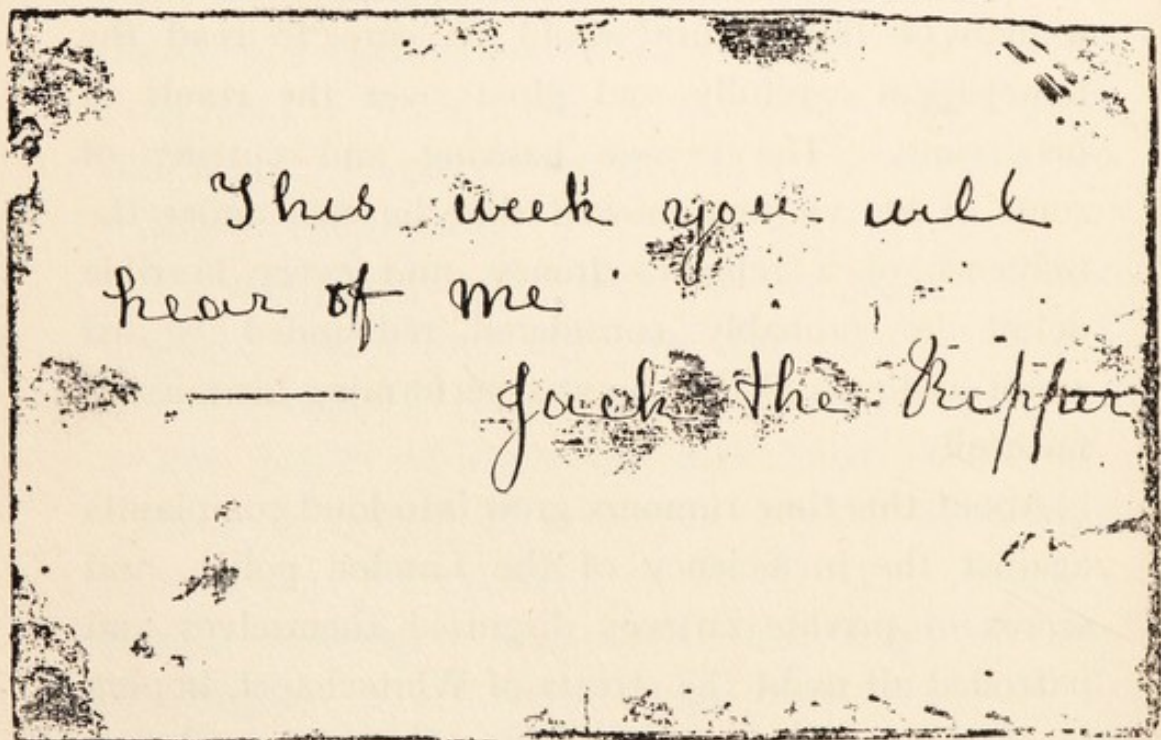 This week you will
hear of me
Jack the Ripper